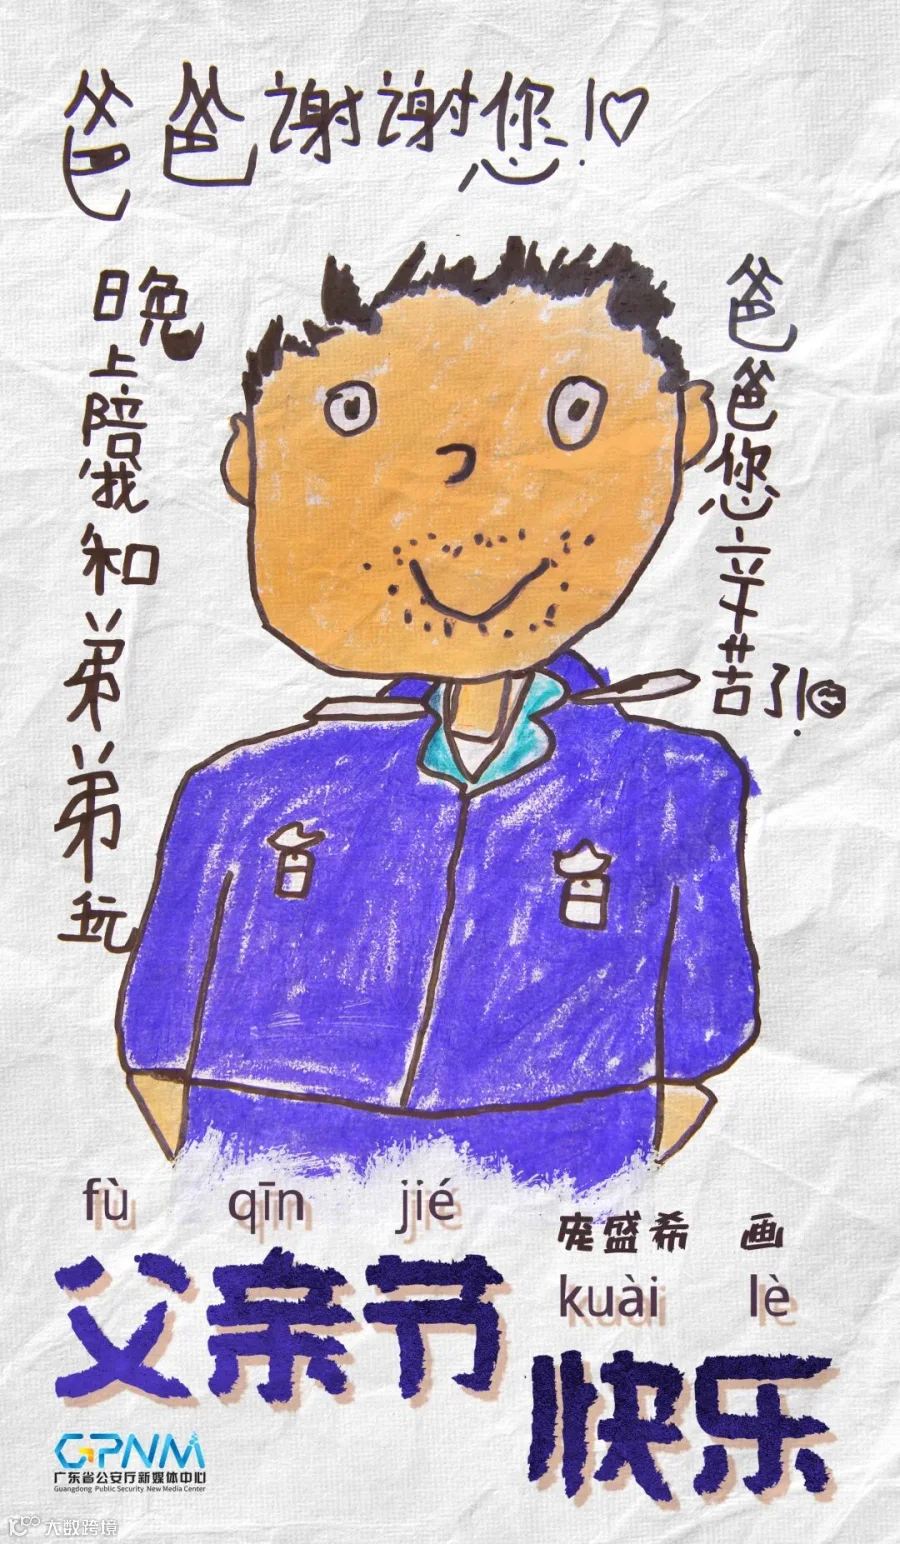 爸爸谢谢您!♡
晚上陪我和弟弟玩
爸爸您辛苦了!
fù qīn jié
父亲节
庞盛希 画
kuài lè
快乐
GPNM
广东省公安厅新媒体中心
Guangdong Public Security New Media Center
大数跨境